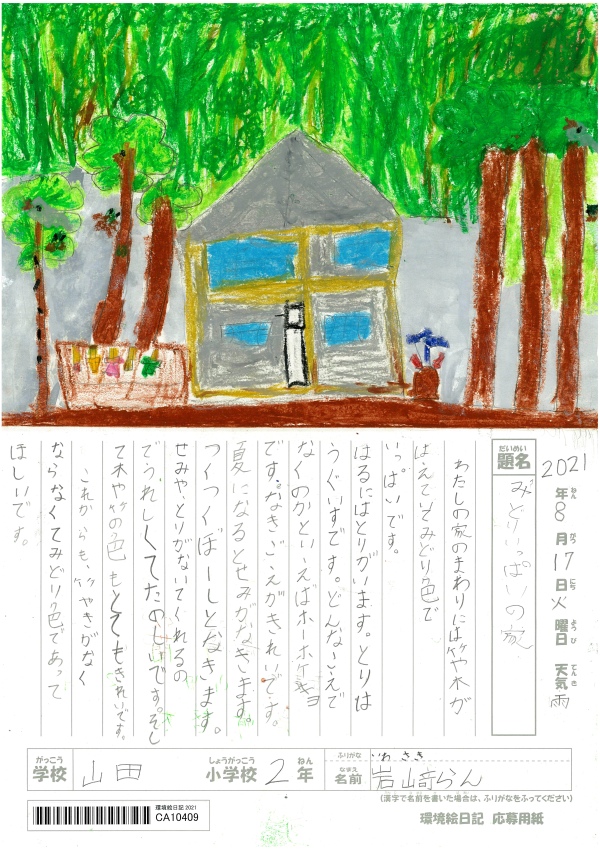 2021年8月17日火曜日 天気雨
ねん がつ にち ようび てんき
だいめい
題名 みどりいっぱいの家
わたしの家のまわりには竹や木が
はえていてみどり色で
いっぱいです。
はるにはとりがいます。とりは
うぐいすです。どんないえで
なくのかといえばホーホケキョ
です。なきごえがきれいです。
夏になるとせみがなきます。
つくつくぼーしとなきます。
せみや、とりがないてくれるの
でうれしくてたのしいです。そし
て木や竹の色もとてもきれいです。
これからも、竹やきがなく
ならなくてみどり色であって
ほしいです。
がっこう しょうがっこう ねん
学校 山田 小学校 2年
ふりがな いわさき
なまえ
名前 岩﨑らん
(漢字で名前を書いた場合は、ふりがなをふってください)
環境絵日記 2021
CA10409
環境絵日記 応募用紙